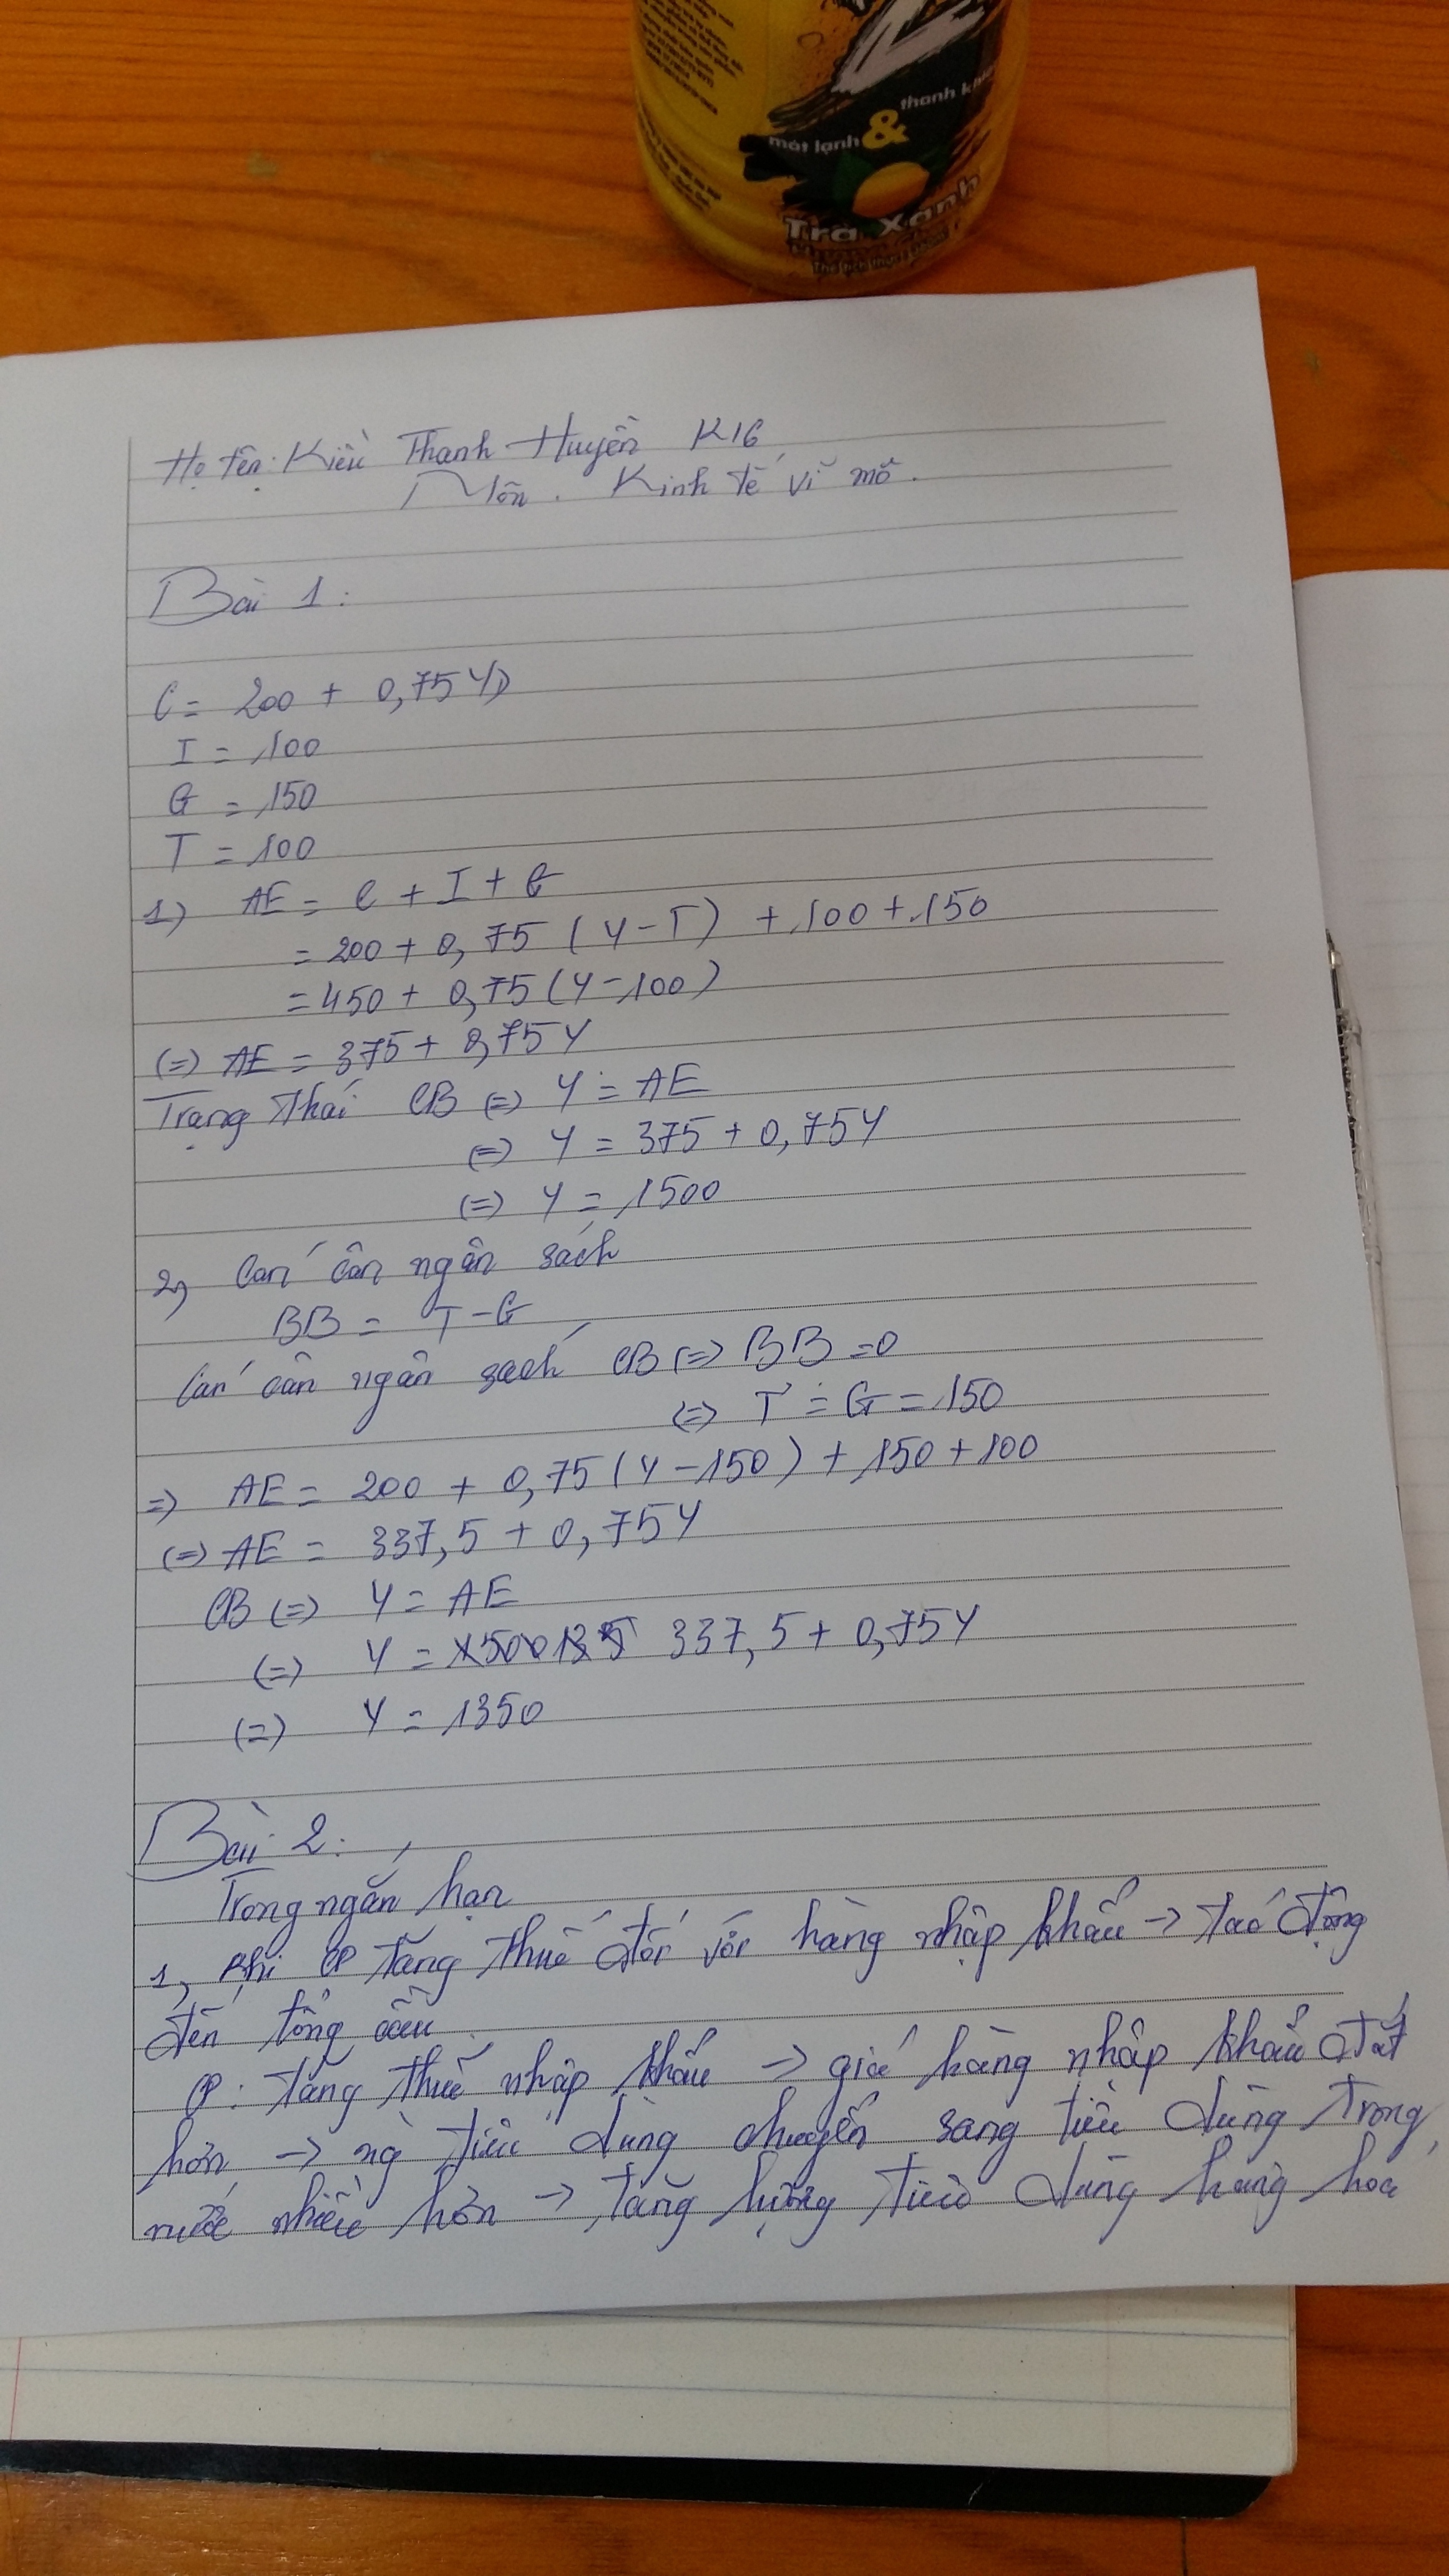 mát lạnh & thanh khiết
Trà Xanh
Họ tên: Kiều Thanh Huyền K16
Môn. Kinh tế vĩ mô.
Bài 1:
C = 200 + 0,75YD
I = 100
G = 150
T = 100
1) AE = C + I + G
= 200 + 0,75 (Y-T) + 100 + 150
= 450 + 0,75 (Y-100)
(=) AE = 375 + 0,75Y
Trạng thái CB (=) Y = AE
(=) Y = 375 + 0,75Y
(=) Y = 1500
2, Cán cân ngân sách
BB = T - G
Cán cân ngân sách CB (=) BB = 0
(=) T = G = 150
=) AE = 200 + 0,75 (Y - 150) + 150 + 100
(=) AE = 337,5 + 0,75Y
CB (=) Y = AE
(=) Y = 337,5 + 0,75Y
(=) Y = 1350
Bài 2:
Trong ngắn hạn
1, Khi CP tăng thuế đối với hàng nhập khẩu → tác động
đến tổng cầu
CP: tăng thuế nhập khẩu → giá hàng nhập khẩu đắt
hơn → ng tiêu dùng chuyển sang tiêu dùng trong
nước nhiều hơn → tăng lượng tiêu dùng hàng hoá